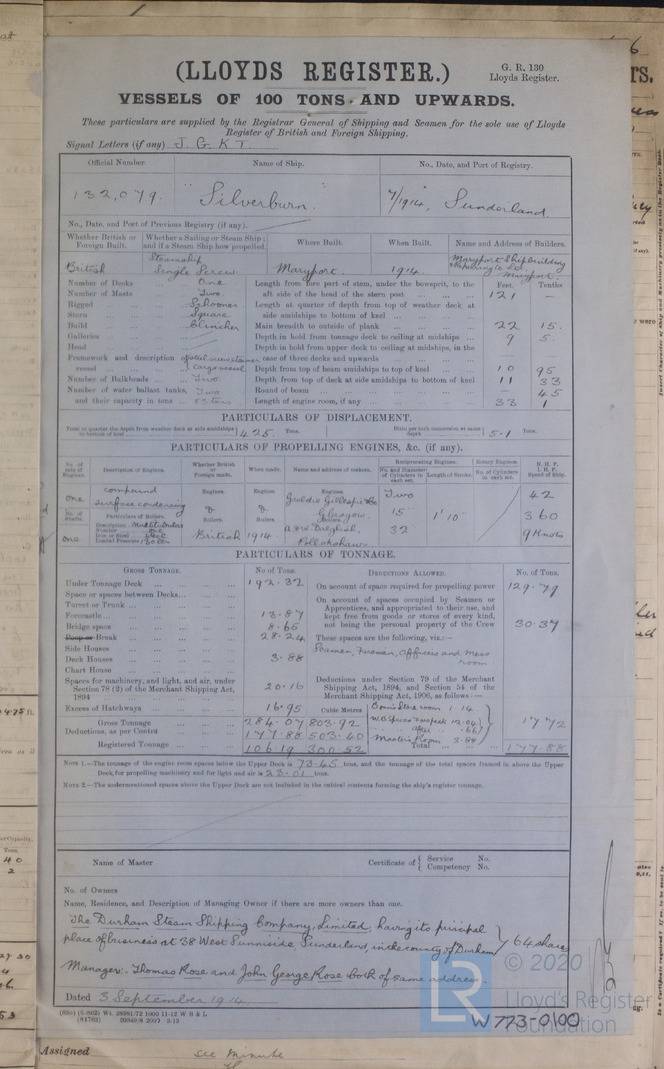 (LLOYDS REGISTER.)
G. R. 130
Lloyds Register.
VESSELS OF 100 TONS AND UPWARDS.
These particulars are supplied by the Registrar General of Shipping and Seamen for the sole use of Lloyds
Register of British and Foreign Shipping.
Signal Letters (if any) J. G. K T.
Official Number. Name of Ship. No., Date, and Port of Registry.
132,079. "Silverburn." 7/1914, Sunderland.
No., Date, and Port of Previous Registry (if any).
Whether British or Foreign Built. Whether a Sailing or Steam Ship; and if a Steam Ship how propelled. Where Built. When Built. Name and Address of Builders.
British Steamship Single Screw Maryport. 1914. Maryport Shipbuilding Maryport
Feet. Tenths
Number of Decks One Length from fore part of stem, under the bowsprit, to the
Number of Masts Two aft side of the head of the stern post 121 —
Rigged Schooner Length at quarter of depth from top of weather deck at
Stern Square side amidships to bottom of keel
Build Clincher Main breadth to outside of plank 22 15
Galleries Depth in hold from tonnage deck to ceiling at midships 9 5
Head Depth in hold from upper deck to ceiling at midships, in the
Framework and description of case of three decks and upwards
vessel Depth from top of beam amidships to top of keel 10 95
Number of Bulkheads Two Depth from top of deck at side amidships to bottom of keel 11 33
Number of water ballast tanks, Two Round of beam 45
and their capacity in tons 53 tons Length of engine room, if any 33 1
PARTICULARS OF DISPLACEMENT.
Total to quarter the depth from weather deck at side amidships to bottom of keel 425 Tons. Ditto per inch immersion at same depth 5.1 Tons.
PARTICULARS OF PROPELLING ENGINES, &c. (if any).
No. of sets of Engines. Description of Engines. Whether British or Foreign made. When made. Name and address of makers. Reciprocating Engines. Rotary Engines. N. H. P. I. H. P. Speed of Ship.
No. and Diameter of Cylinders in each set. Length of Stroke. No. of Cylinders in each set.
One compound surface condensing Engines. Engines. Engines. Two 42
No. of Shafts. Particulars of Boilers. & Boilers. & Boilers. Glasgow. Boilers. 15 1' 10" 360
One Description Number Iron or Steel Loaded Pressure British 1914 Pollokshaws 32 9 Knots
PARTICULARS OF TONNAGE.
GROSS TONNAGE. No. of Tons. DEDUCTIONS ALLOWED. No. of Tons.
Under Tonnage Deck 192.32 On account of space required for propelling power 129.79
Space or spaces between Decks On account of spaces occupied by Seamen or
Turret or Trunk Apprentices, and appropriated to their use, and
Forecastle 13.87 kept free from goods or stores of every kind,
Bridge space 8.65 not being the personal property of the Crew 30.37
Poop or Break 28.24 These spaces are the following, viz:—
Side Houses Seamen, Firemen, Officers and mess room
Deck Houses 3.88
Chart House
Spaces for machinery, and light, and air, under Deductions under Section 79 of the Merchant
Section 78 (2) of the Merchant Shipping Act, Shipping Act, 1894, and Section 54 of the
1894 20.16 Merchant Shipping Act, 1906, as follows:—
Excess of Hatchways 16.95 Cubic Metres Bosn's Store room 1.14
Gross Tonnage 284.07 803.92 W.B. Spaces forepeak 12.04 17.72
Deductions, as per Contra 177.88 503.40 " " after .66
Registered Tonnage 106.19 300.52 Master's Room 3.88
Total 177.88
NOTE 1.—The tonnage of the engine room spaces below the Upper Deck is 73.45 tons, and the tonnage of the total spaces framed in above the Upper
Deck, for propelling machinery and for light and air is 23.01 tons.
NOTE 2.—The undermentioned spaces above the Upper Deck are not included in the cubical contents forming the ship's register tonnage.
Name of Master Certificate of Service No.
Competency No.
No. of Owners
Name, Residence, and Description of Managing Owner if there are more owners than one.
The Durham Steam Shipping Company, Limited, having its principal
place of business at 38 West Sunniside, Sunderland, in the county of Durham 64 shares
Manager:- Thomas Rose and John George Rose both of same address.
Dated 3 September 1914.
© 2020
Lloyd's Register
Foundation
W773-0100
Assigned
see minute